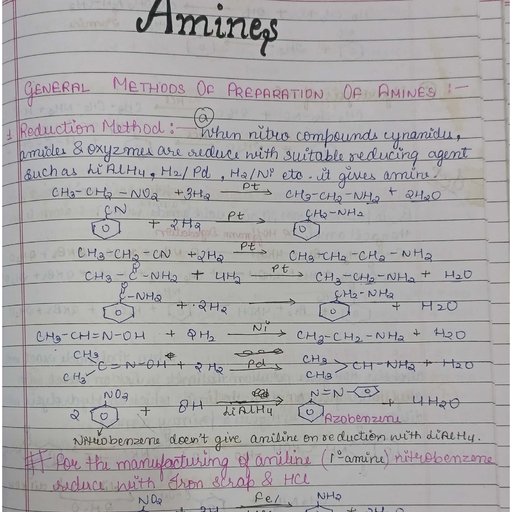 Amines
GENERAL METHODS OF PREPARATION OF AMINES :-
(a)
1 Reduction Method :- When nitro compounds cynanides,
amides & oxyzmes are reduce with suitable reducing agent
such as LiAlH4, H2/Pd, H2/Ni etc. it gives amine.
CH3-CH2-NO2 +3H2 Pt → CH3-CH2-NH2 + 2H2O
CN + 2H2 Pt → CH2-NH2
CH3-CH2-CN +2H2 Pt → CH3-CH2-CH2-NH2
O
CH3-C-NH2 + 4H2 Pt → CH3-CH2-NH2 + H2O
O
C-NH2 + 2H2 → CH2-NH2 + H2O
CH3-CH=N-OH + 2H2 Ni → CH3-CH2-NH2 + H2O
CH3 CH3
C=N-OH + 2H2 Pd → CH-NH2 + H2O
CH3 CH3
NO2 N=N
2 + 8H LiAlH4 → + 4H2O
Azobenzene
Nitrobenzene doesn't give aniline on reduction with LiAlH4.
# For the manufacturing of aniline (1° amine) nitrobenzene
reduce with Iron scrap & HCl
NO2 Fe/ NH2